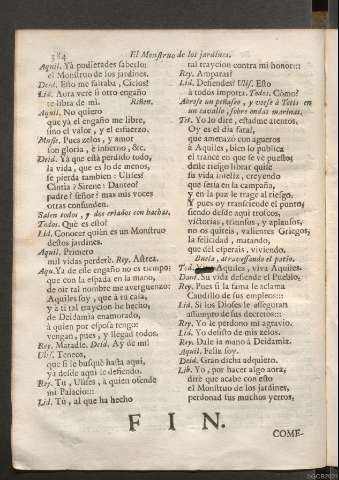 384
El Monstruo de los jardines.
Aquil. Yà pudierades saberlo:
el Monstruo de los jardines.
Deid. Esto me faltaba, Cielos!
Lid. Aora verè si otro engaño
te libra de mi. Riñen.
Aquil. No quiero
que ya el engaño me libre,
sino el valor, y el esfuerzo.
Musie. Pues zelos, y amor
son gloria, è infierno, &c.
Deid. Yà que està perdido todo,
la vida, que es lo de menos,
se pierda tambien: Ulises!
Cintia? Sirene? Danteo?
padre? señor? mas mis voces
otras confunden.
Salen todos, y dos criados con hachas.
Todos. Què es esto?
Lid. Conocer quièn es un Monstruo
destos jardines.
Aquil. Primero
mil vidas perderè. Rey. Astrea.
Aqu. Ya de esse engaño no es tiempo:
que con la espada en la mano,
de oir tal nombre me averguenzo:
Aquiles soy, que à tu casa,
y à ti tal traycion he hecho,
de Deidamia enamorado,
à quien por esposa tengo:
vengan, pues, y llegad todos.
Rey. Matadle. Deid. Ay de mì!
Ulis. Teneos,
que si le busquè hasta aqui,
ya desde aqui le defiendo.
Rey. Tu, Ulises, à quien ofende
mi Palacio:::
Lid. Tu, al que ha hecho
tal traycion contra mi honor:::
Rey. Amparas?
Lid. Defiendes? Ulis. Esto
à todos importa. Todos. Còmo?
Abrese un peñasco, y veese à Tetis en
un cavallo, sobre ondas marinas.
Tet. Yo lo dire, estadme atentos,
Oy es el dia fatal,
que amenazò con agueros
à Aquiles, bien lo publica
el trance en que se vè puesto;
deste riesgo librar quise
su vida infeliz, creyendo
que seria en la campaña,
y en la paz le trage al riesgo.
Y pues oy transciende el punto,
siendo desde aqui trofeos,
victorias, triunfos, y aplausos,
no os quiteis, valientes Griegos,
la felicidad, matando,
que del esperais, viviendo.
Buela, atravessando el patio.
Tod. Aquiles, viva Aquiles.
Dant. Su vida defiende el Pueblo.
Rey. Pues si la fama le aclama
Caudillo de sus empleos:::
Lid. Si los Dioses le asseguran
assumpto de sus decretos:::
Rey. Yo le perdono mi agravio.
Lid. Yo desisto de mis zelos.
Rey. Dale la mano à Deidamia.
Aquil. Feliz soy.
Deid. Gran dicha adquiero.
Lib. Yo, por hacer algo aora,
dirè que acabe con esto
el Monstruo de los jardines,
perdonad sus muchos yerros.
FIN.
COME-